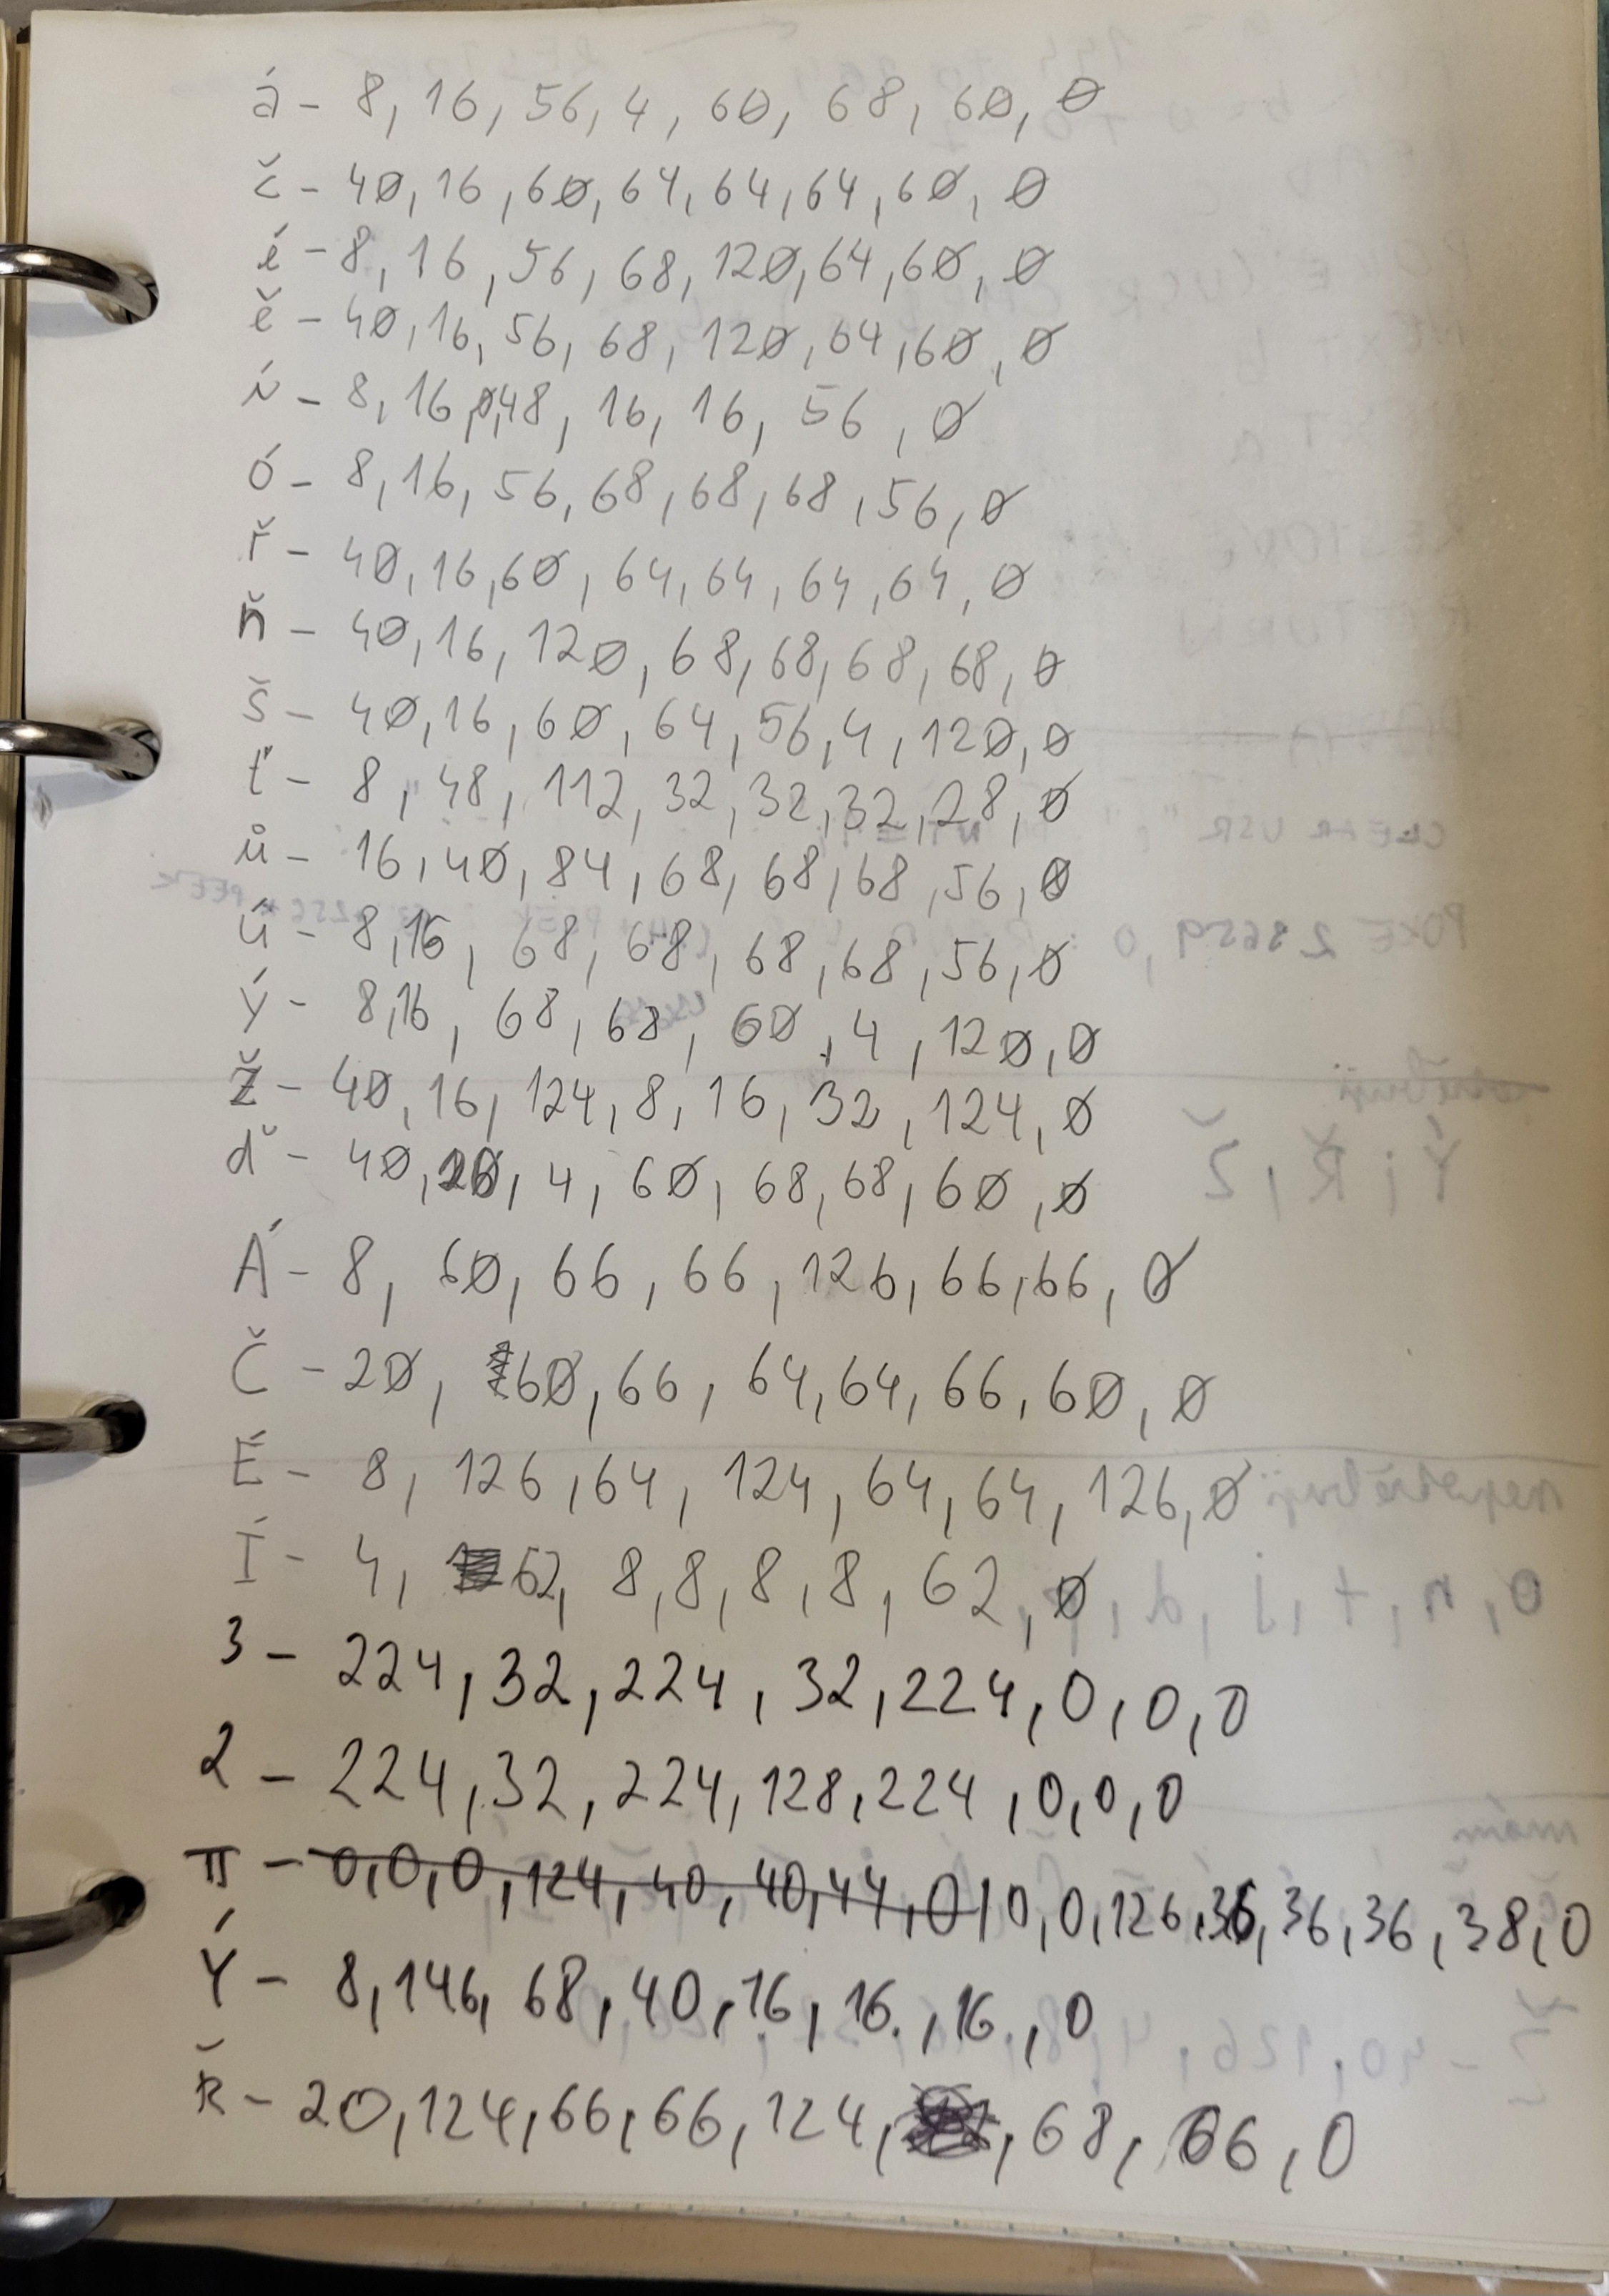 á - 8, 16, 56, 4, 60, 68, 60, 0
č - 40, 16, 60, 64, 64, 64, 60, 0
é - 8, 16, 56, 68, 120, 64, 60, 0
ě - 40, 16, 56, 68, 120, 64, 60, 0
í - 8, 16, 0, 48, 16, 16, 56, 0
ó - 8, 16, 56, 68, 68, 68, 56, 0
ř - 40, 16, 60, 64, 64, 64, 64, 0
ň - 40, 16, 120, 68, 68, 68, 68, 0
š - 40, 16, 60, 64, 56, 4, 120, 0
ť - 8, 48, 112, 32, 32, 32, 28, 0
ů - 16, 40, 84, 68, 68, 68, 56, 0
ú - 8, 16, 68, 68, 68, 68, 56, 0
ý - 8, 16, 68, 68, 60, 4, 120, 0
ž - 40, 16, 124, 8, 16, 32, 124, 0
ď - 40, 20, 4, 60, 68, 68, 60, 0
Á - 8, 60, 66, 66, 126, 66, 66, 0
Č - 20, 60, 66, 64, 64, 66, 60, 0
É - 8, 126, 64, 124, 64, 64, 126, 0
Í - 4, 62, 8, 8, 8, 8, 62, 0
3 - 224, 32, 224, 32, 224, 0, 0, 0
2 - 224, 32, 224, 128, 224, 0, 0, 0
π - 0, 0, 0, 124, 40, 40, 44, 0 | 0, 0, 126, 36, 36, 36, 38, 0
Ý - 8, 146, 68, 40, 16, 16, 16, 0
Ř - 20, 124, 66, 66, 124, 68, 66, 0